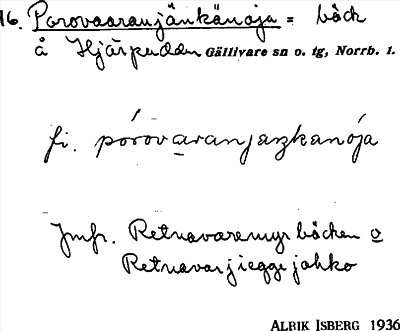 16. Porovaaranjänkänoja = bäck
å Hjärpudden Gällivare sn o. tg, Norrb. l.
fi. pórovaranjaŋkanója
Jmfr. Retnavaremyrbäcken o
Retnavarjieggejohko
ALRIK ISBERG 1936